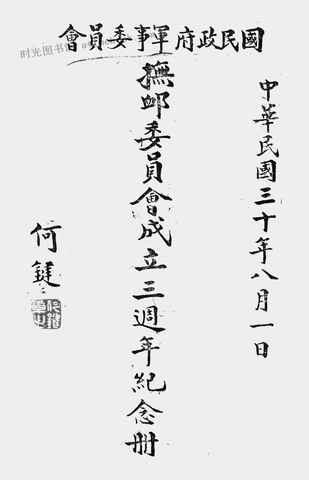 國民政府軍事委員會
时光图书
中華民國三十年八月一日
撫卹委員會成立三週年紀念冊
何鍵